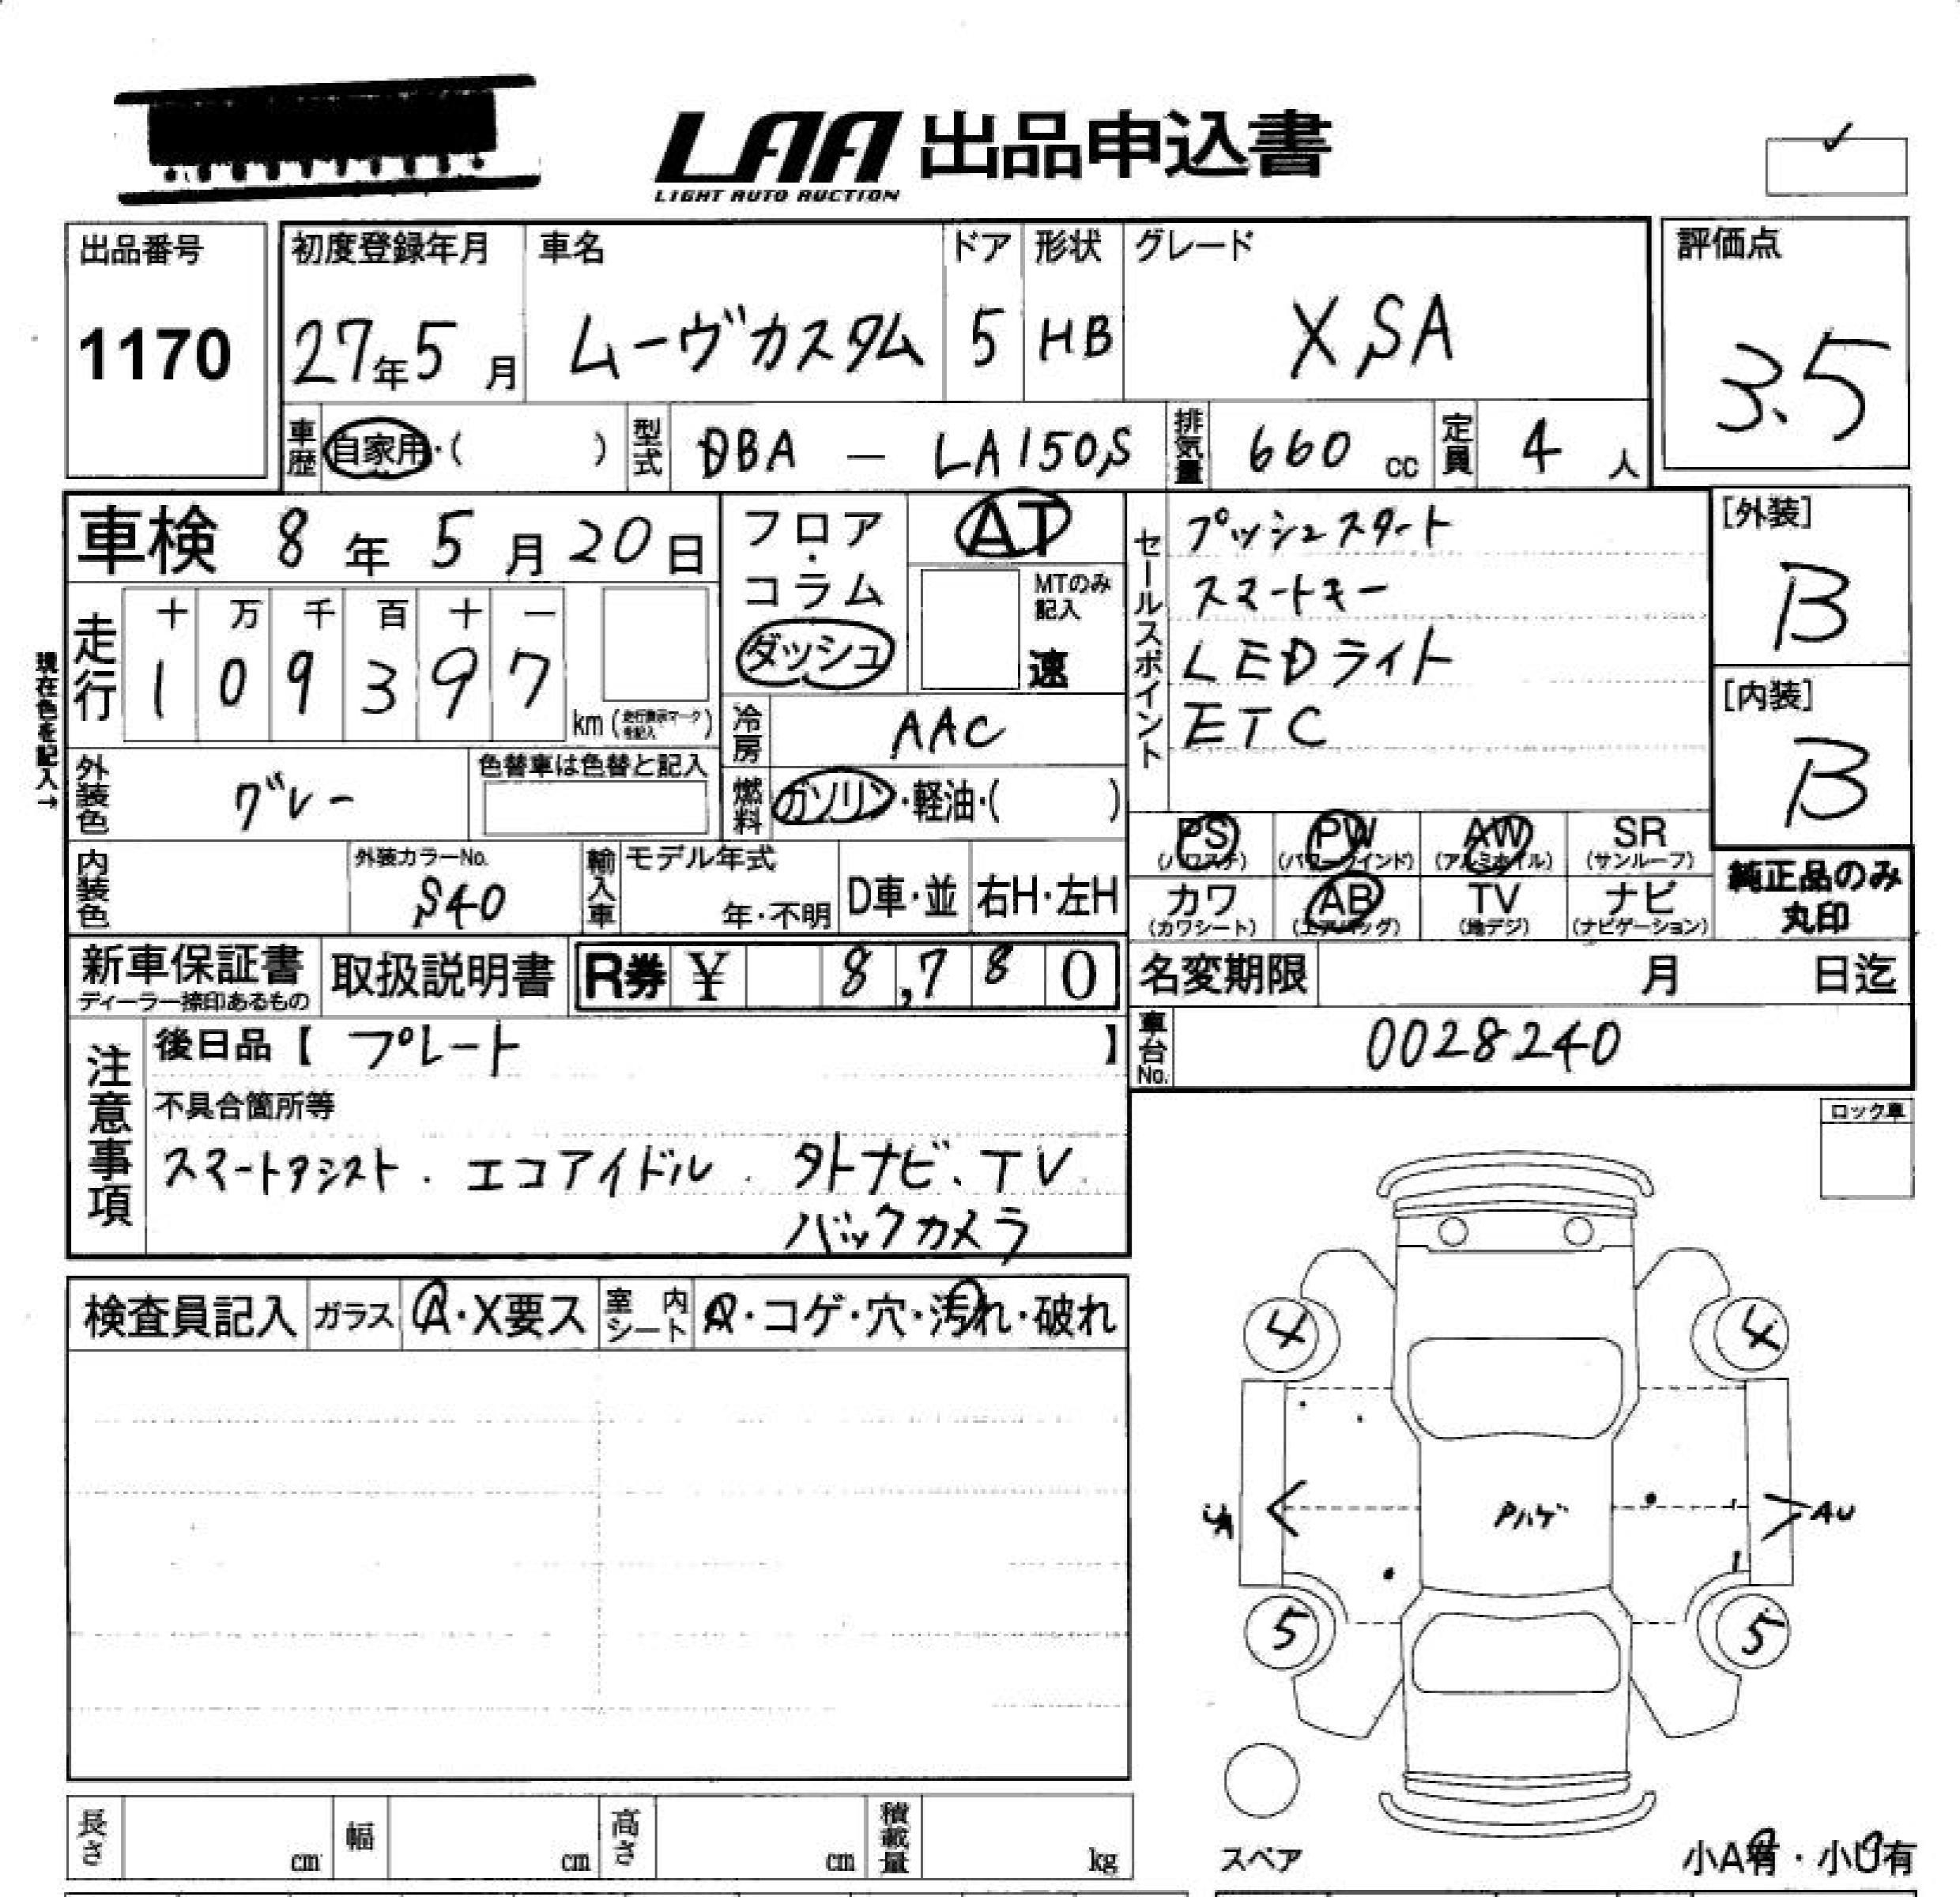 LAA 出品申込書
LIGHT AUTO AUCTION
✓
出品番号
1170
初度登録年月
27年5月
車名
ムーヴカスタム
ドア
5
形状
HB
グレード
XSA
評価点
3.5
車歴 自家用・( )
型式 DBA — LA150S
排気量 660 cc
定員 4 人
車検 8年5月20日
フロア・コラム
ダッシュ
AT
MTのみ記入
速
セールスポイント
プッシュスタート
スマートキー
LEDライト
ETC
[外装]
B
[内装]
B
現在色を記入→
走行
十 万 千 百 十 一
1 0 9 3 9 7
km (走行表示マークを記入)
冷房 AAC
外装色 グレー
色替車は色替と記入
燃料 ガソリン・軽油・( )
PS (パワステ) PW (パワーウインド) AW (アルミホイル) SR (サンルーフ)
カワ (カワシート) AB (エアバッグ) TV (地デジ) ナビ (ナビゲーション)
純正品のみ
丸印
内装色
外装カラーNo.
S40
輸入車
モデル年式
年・不明
D車・並
右H・左H
新車保証書
ディーラー捺印あるもの
取扱説明書
R券 ¥ 8,780
名変期限 月 日迄
車台No. 0028240
注意事項
後日品【 プレート 】
不具合箇所等
スマートアシスト . エコアイドル . 外ナビ、TV
バックカメラ
ロック車
検査員記入
ガラス A・X要ス
室内シート A・コゲ・穴・汚れ・破れ
4 4
Pハゲ
AU
5 5
スペア
小A有・小U有
長さ cm
幅 cm
高さ cm
積載量 kg